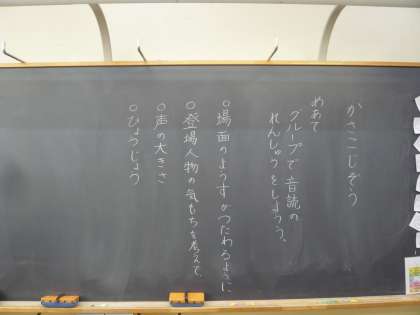 かさこじぞう
めあて
グループで音読の
れんしゅうをしよう。
○場面のようすがつたわるように
○登場人物の気もちを考えて、
○声の大きさ
○ひょうじょう